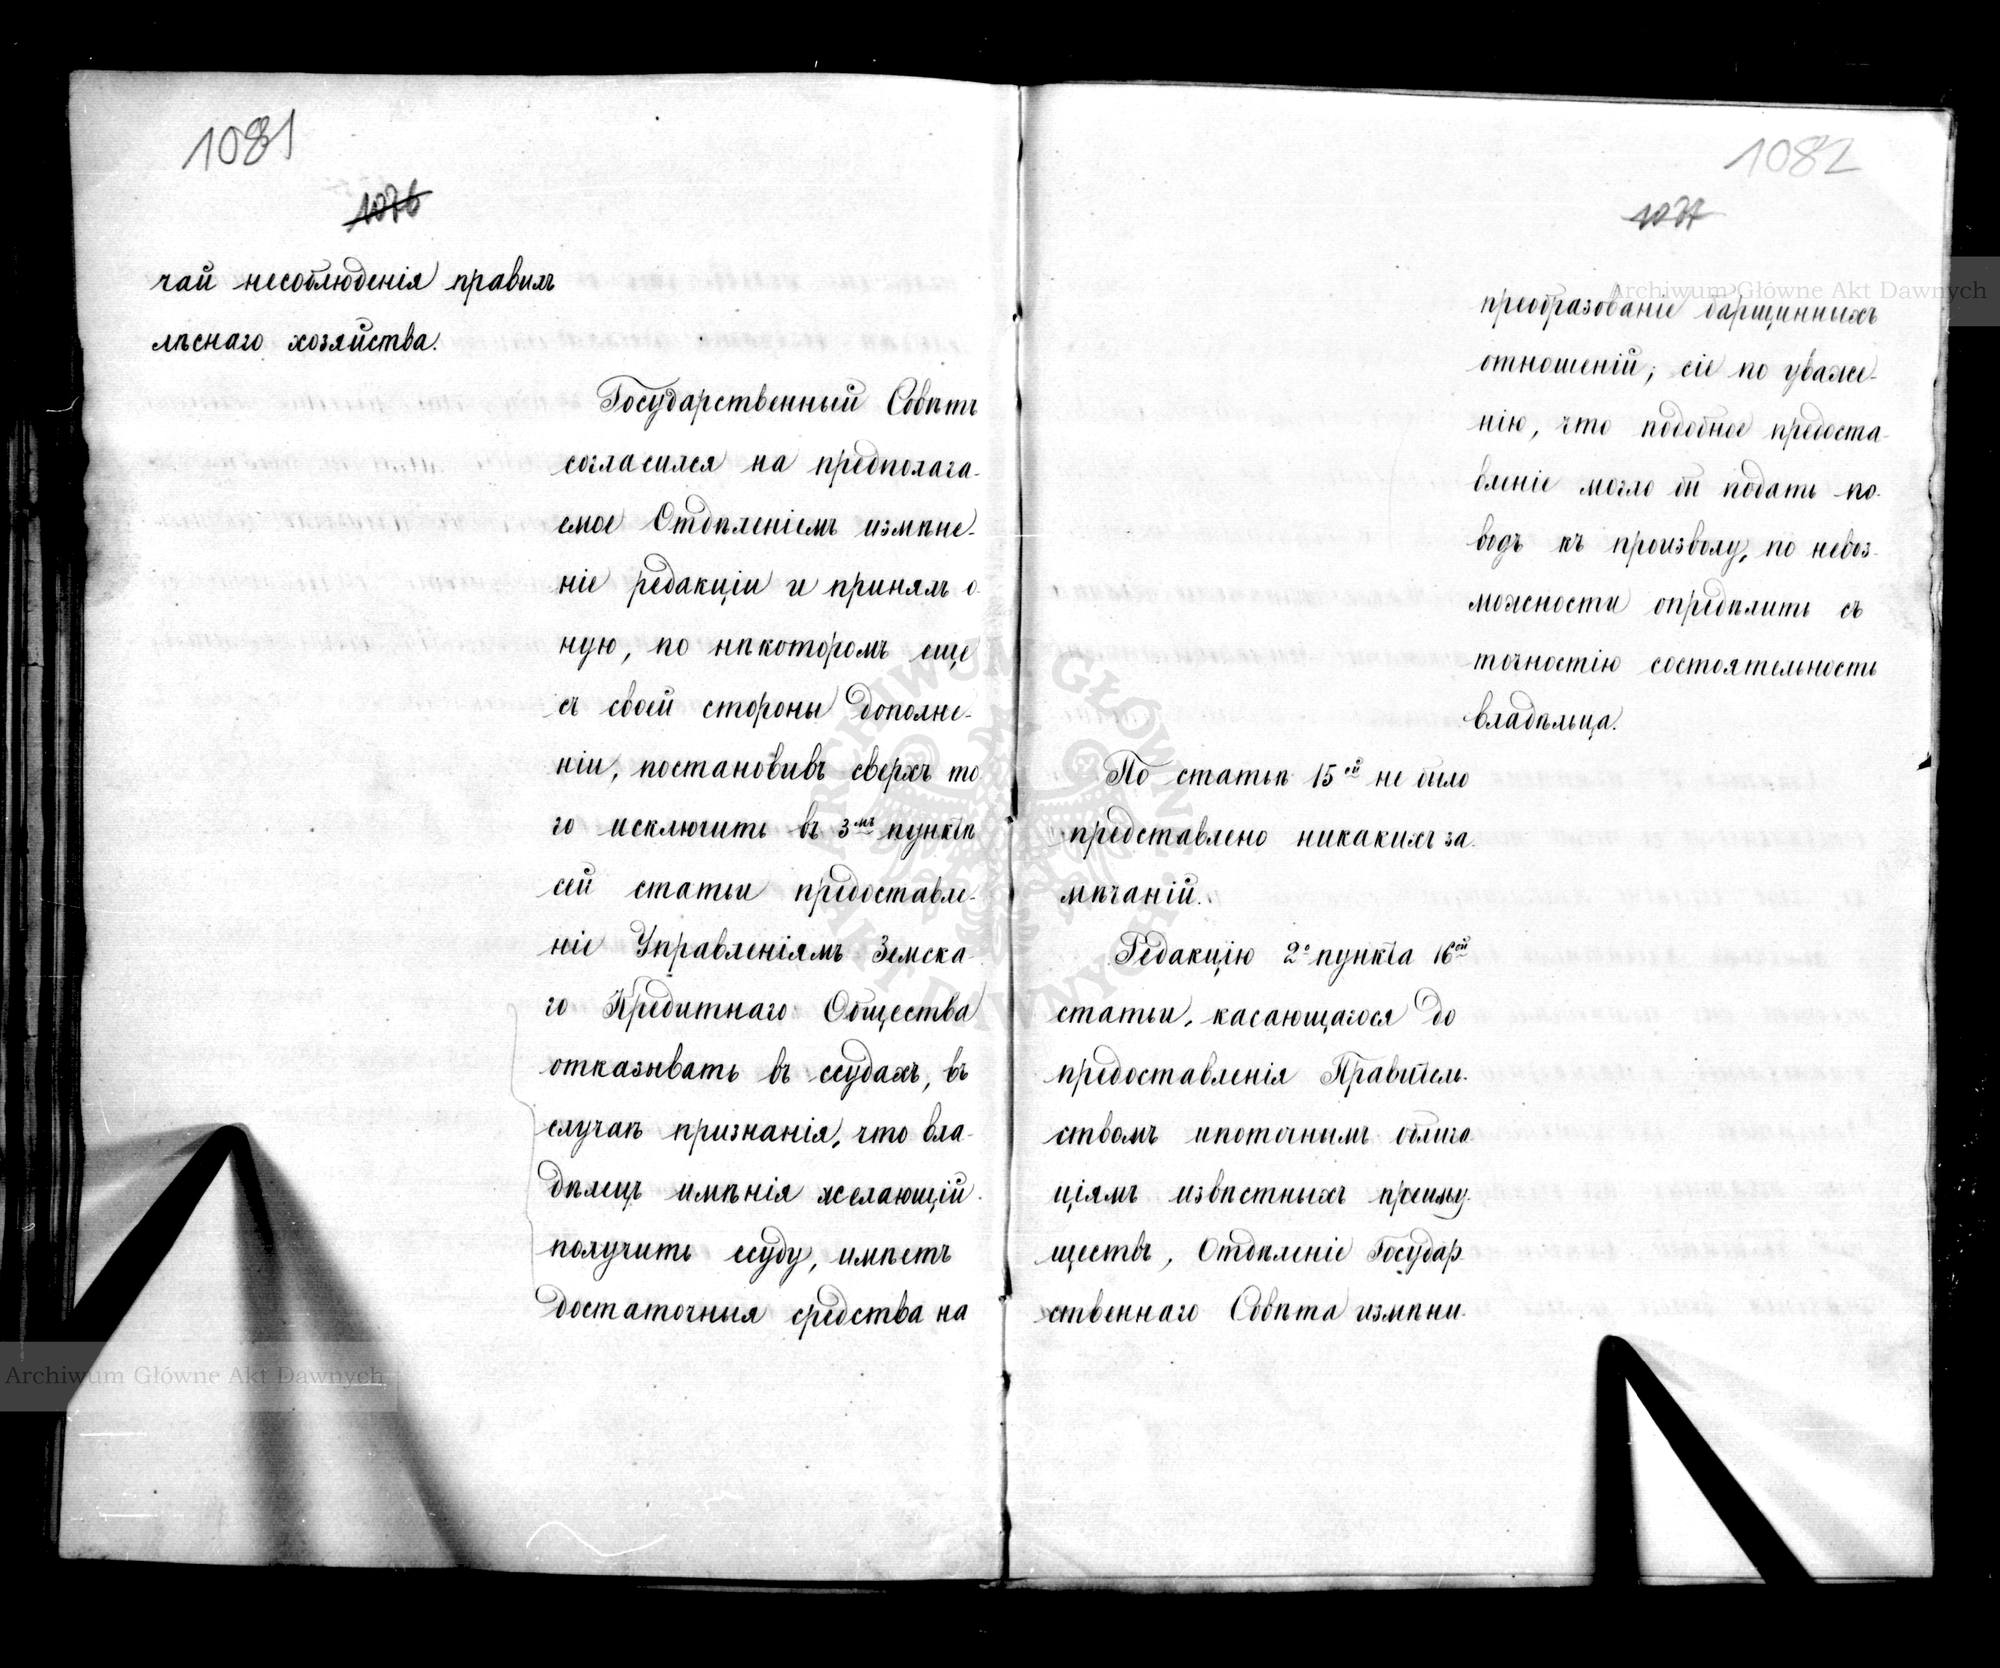 1081
1076
чай несоблюденія правилъ
лѣснаго хозяйства.
Государственный Совѣтъ
согласился на предполага-
емое Отдѣленіемъ измѣне-
ніе редакціи и принялъ о-
ную, по нѣкоторомъ еще
съ своей стороны дополне-
ніи, постановивъ сверхъ то-
го исключить въ 3мъ пунктѣ
сей статьи предоставле-
ніе Управленіямъ Земска-
го Кредитнаго Общества
отказывать въ ссудахъ, въ
случаѣ признанія, что вла-
дѣлецъ имѣнія желающій
получить ссуду, имѣетъ
достаточныя средства на
1082
1077
преобразованіе барщинныхъ
отношеній; сіе по уваже-
нію, что подобное предоста-
вленіе могло бы подать по-
водъ къ произволу, по невоз-
можности опредѣлить съ
точностію состоятельность
владѣльца.
По статьѣ 15ой не было
представлено никакихъ за-
мѣчаній.
Редакцію 2о пункта 16ой
статьи, касающагося до
предоставленія Правитель-
ствомъ ипотечнымъ облига-
ціямъ извѣстныхъ преиму-
ществъ, Отдѣленіе Государ-
ственнаго Совѣта измѣни-
Archiwum Główne Akt Dawnych
Archiwum Główne Akt Dawnych
ARCHIWUM GŁÓWNE AKT DAWNYCH